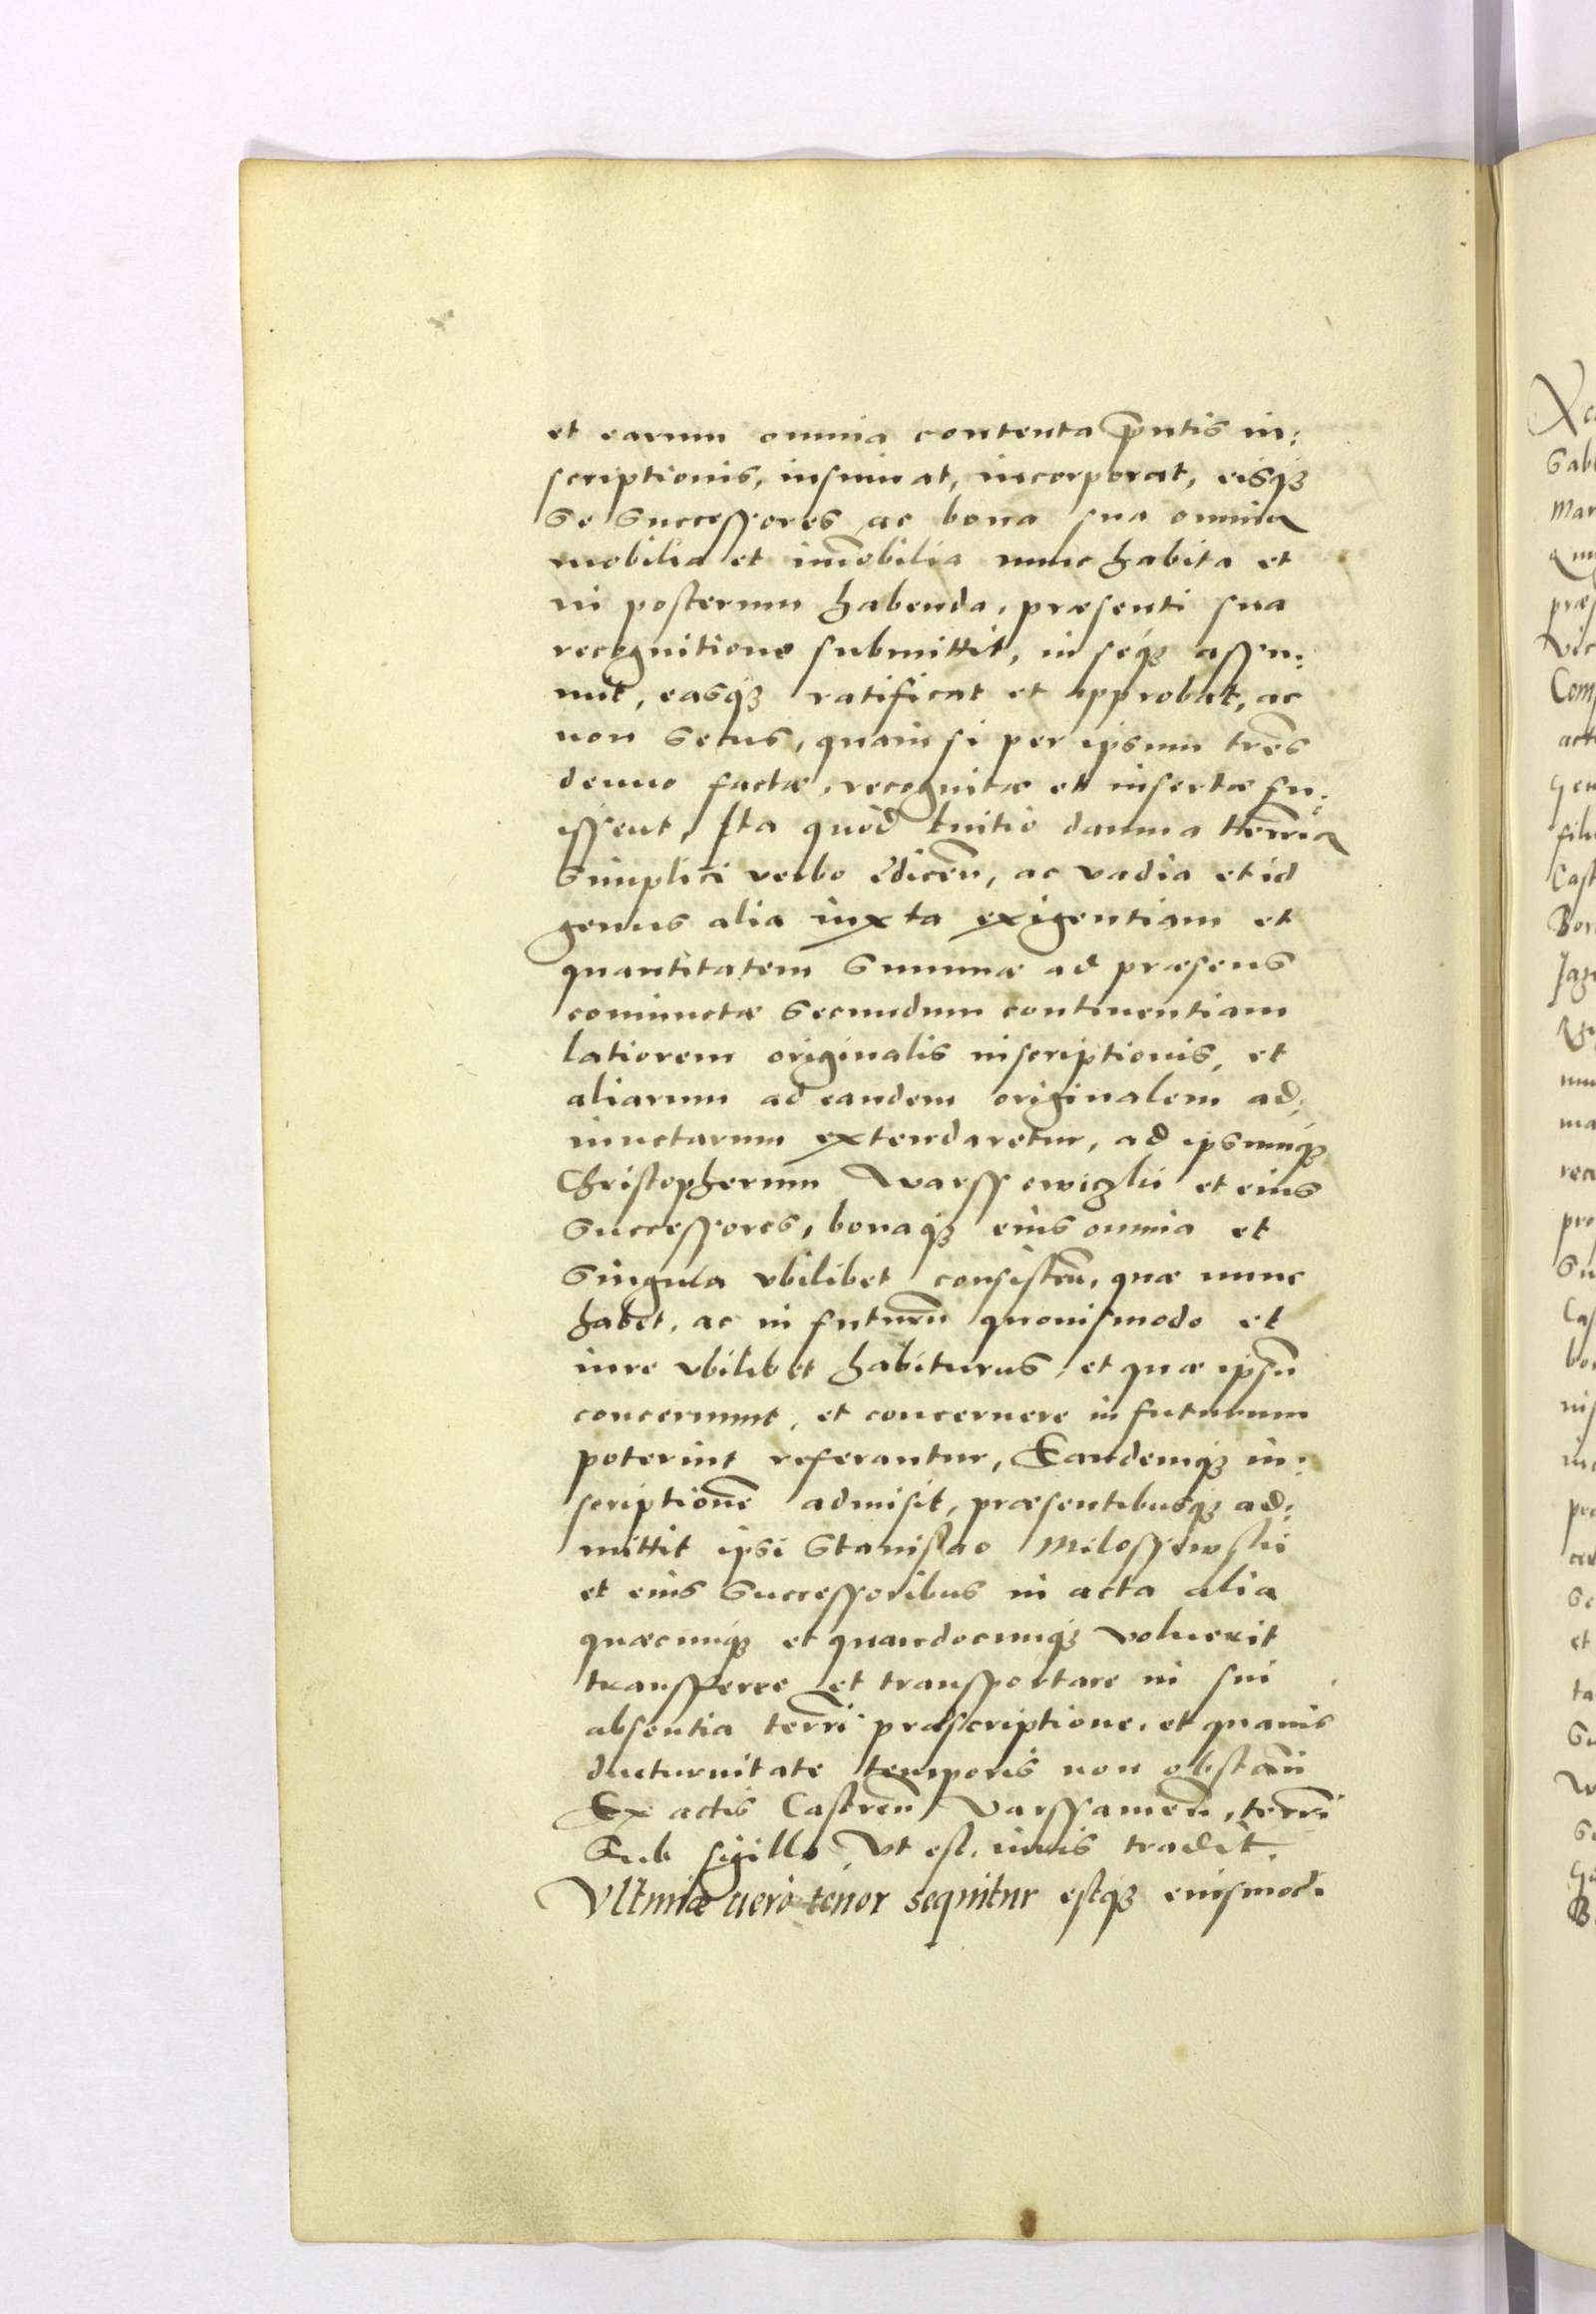 et earum omnia contenta p̃ntis in:
scriptionis, insinuat, incorporat, eisq3
se successores ac bona sua omnia
mobilia et im̃obilia nunc habita et
in posterum habenda, præsenti sua
recognitione submittit, in seq3 assu:
mit, easq3 ratificat et approbat, ac
non secus, quam si per ipsum tres
denuo factæ, recognitæ et insertæ fu:
issent, Ita quod tuitio damna terrña
simplici verbo edicen̄, ac vadia et id
genus alia iuxta exigentiam et
quantitatem summæ ad præsens
coniunctæ secundum continentiam
latiorem originalis inscriptionis, et
aliarum ad eandem originalem ad:
iunctarum extendaretur, ad ipsumq3
Christopherum Warssewiczki et eius
successores, bonaq3 eius omnia et
singula vbilibet consisten̄, quæ nunc
habet, ac in futurū quouismodo et
iure vbilibet habiturus, et quæ ipsū
concernunt, et concernere in futurum
poterint referantur, Eandemq3 in:
scriptionē admisit, præsentibusq3 ad:
mittit ipsi Stanislao Milossewski
et eius successoribus in acta alia
quæcunq3 et quandocunq3 voluerit
transferre et transportare in sui
absentia terrī præscriptione, et quauis
diuturnitate temporis non obstan̄
Ex actis Castren̄ Varssauien̄, terrī
Sub sigillo Vt est iuris tradit.
Vltimæ uero tenor sequitur estq3 eiusmodi